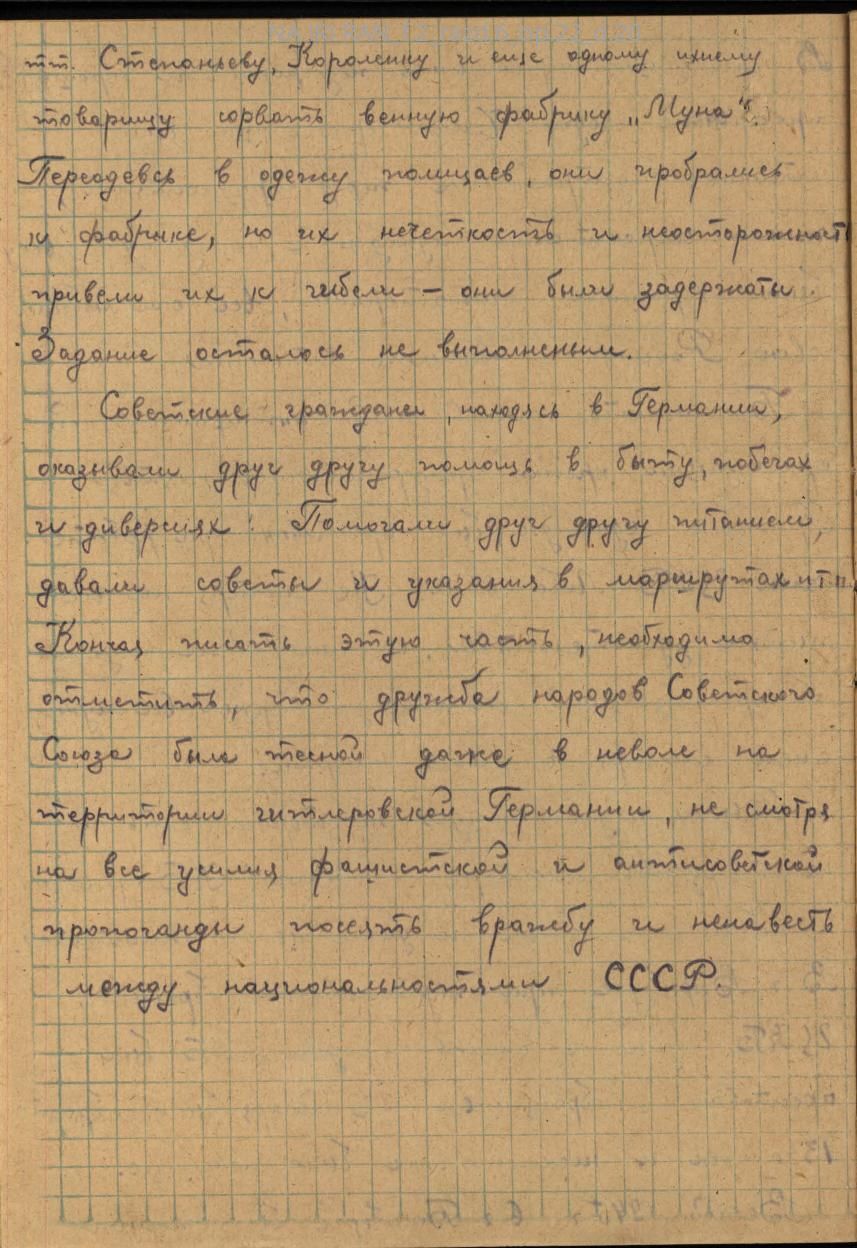 тт. Степаньеву, Короленку и еще одному ихнему
товарищу сорвать венную фабрику „Муна“.
Переодевсь в одежу полицаев, они пробрались
к фабрыке, но их нечеткость и неосторожност
привели их к гибели – они были задержаты.
Задание осталось не выполненым.
Советские граждане, находясь в Германии,
оказывали друг другу помощь в быту, побегах
и диверсиях. Помогали друг другу питанием,
давали советы и указания в маршрутах и т п
Кончая писать этую часть, необходимо
отметить, что дружба народов Советского
Союза была тесной даже в неволе на
территории гитлеровской Германии, не смотря
на все усилия фашистской и антисоветской
пропоганды посеять вражбу и ненавесть
между национальностями СССР.